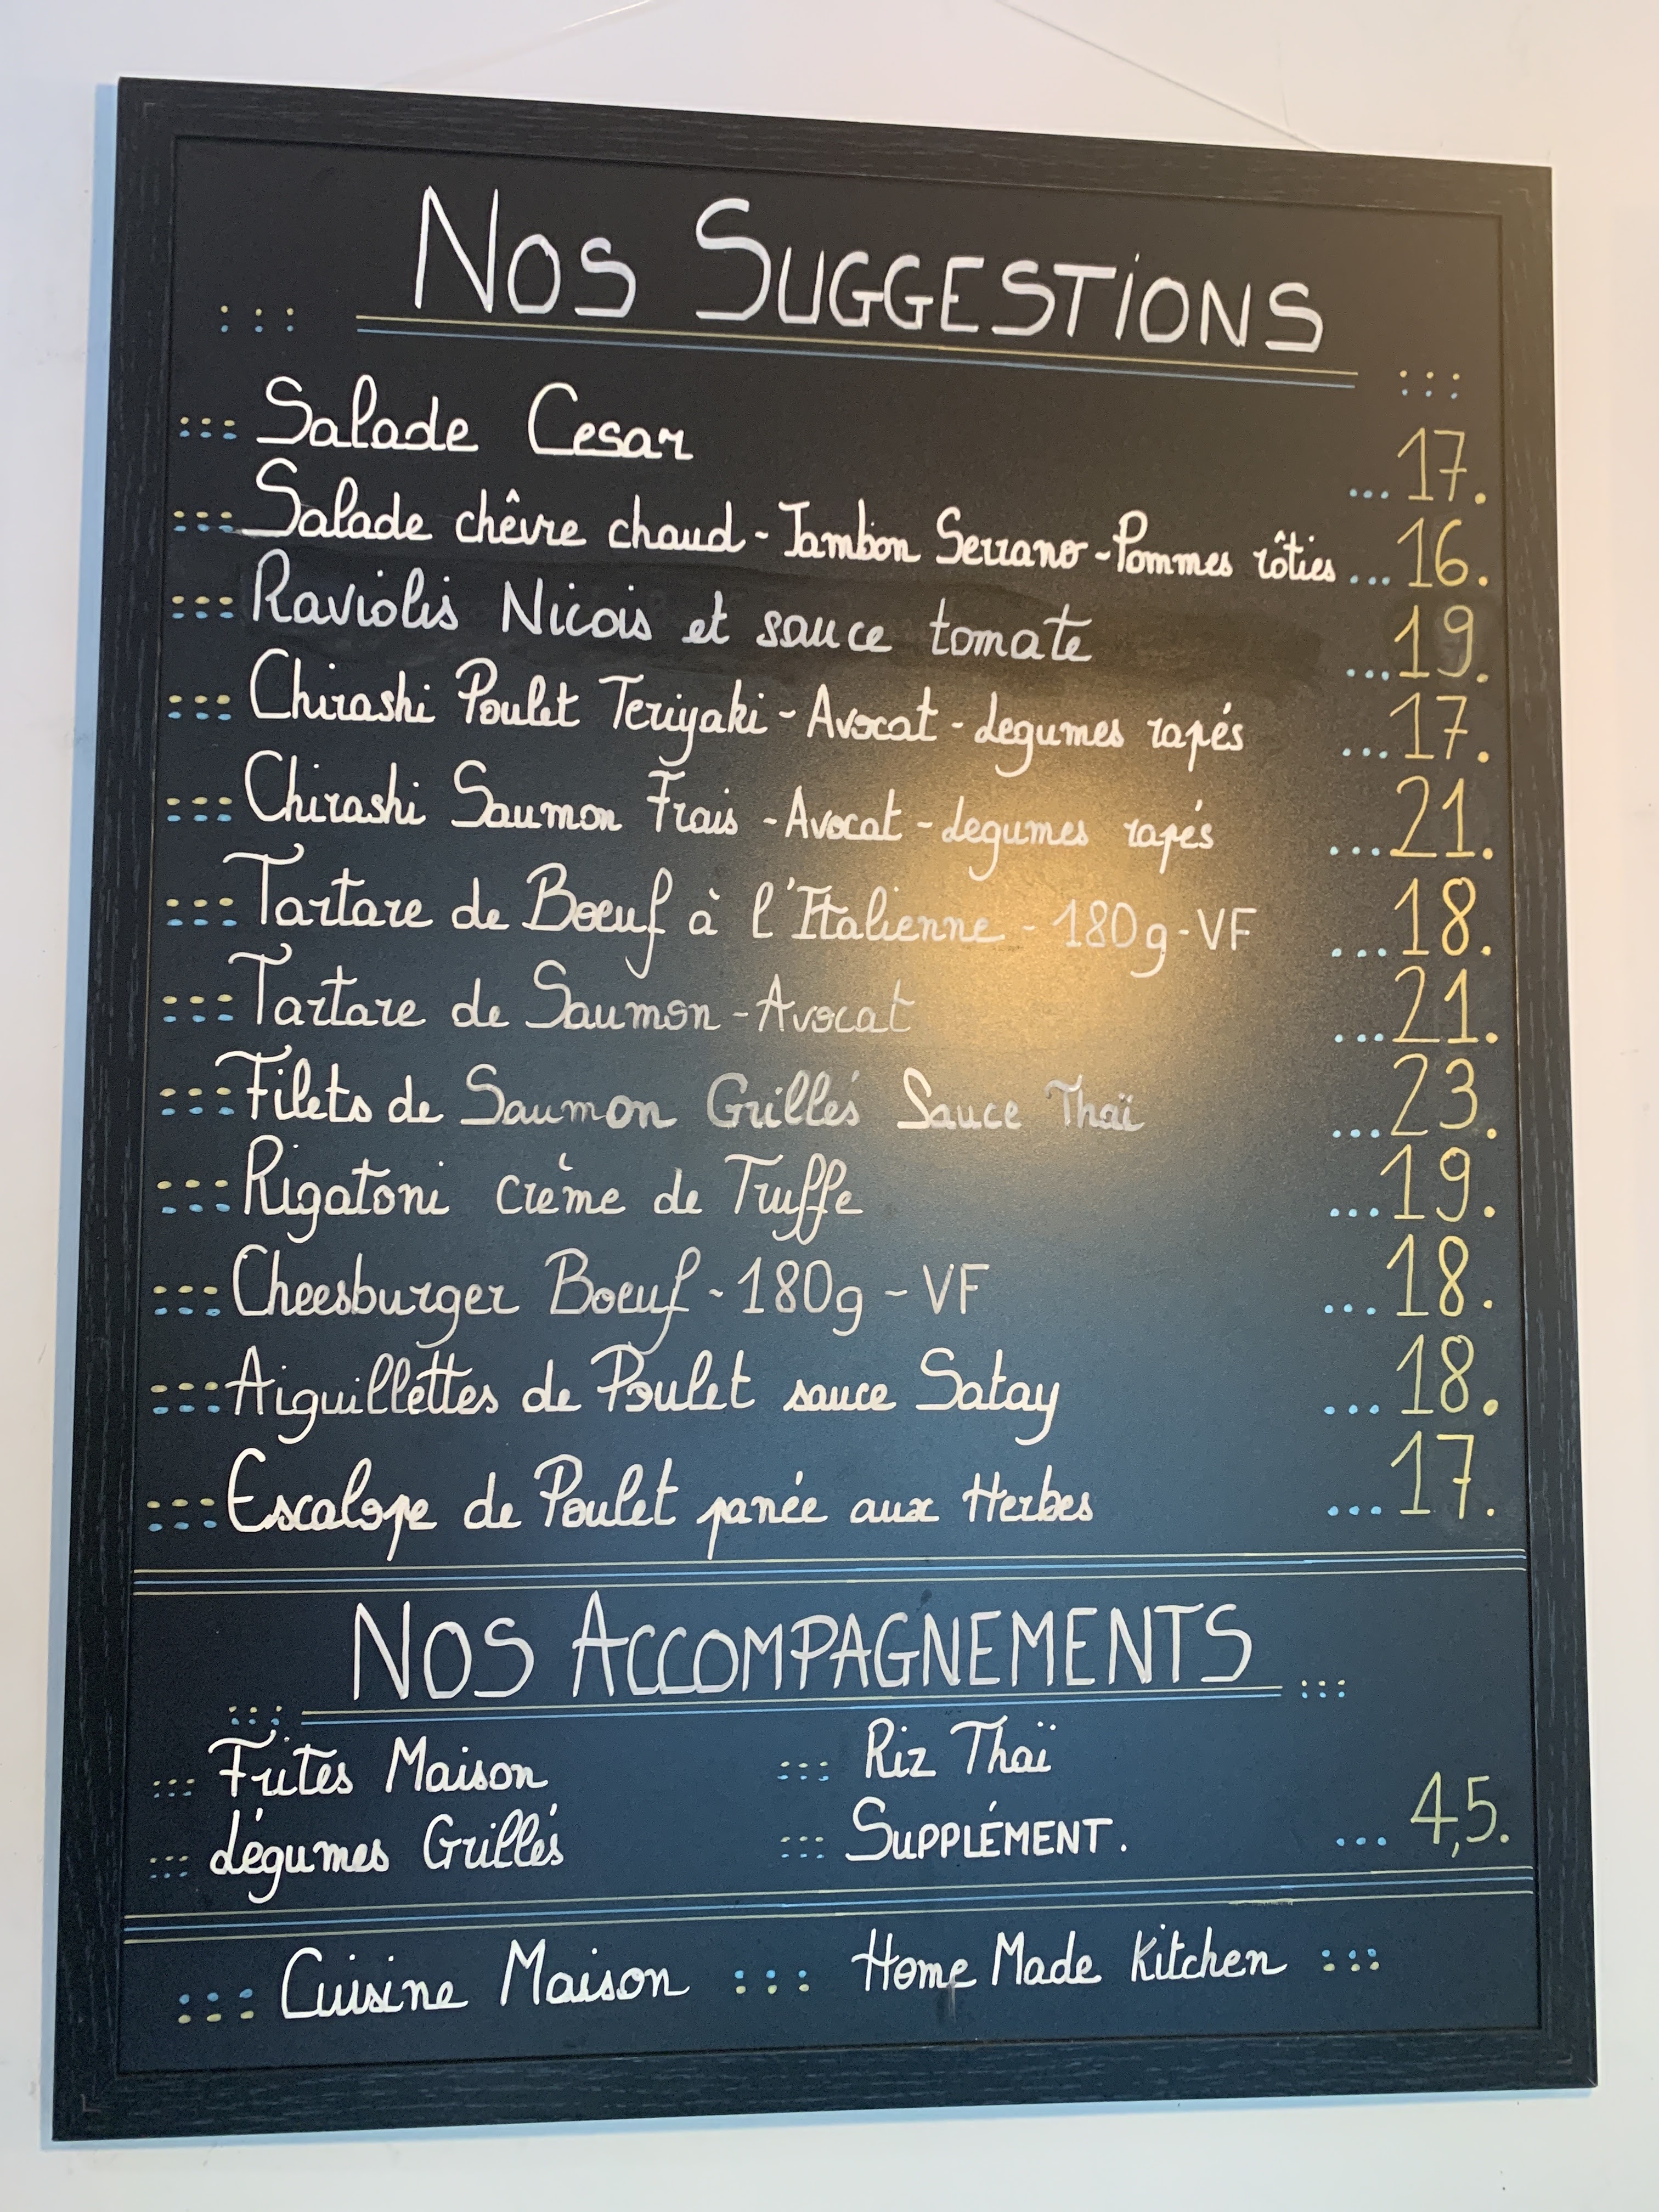 Nos Suggestions
Salade Cesar ... 17.
Salade chêvre chaud - Jambon Serrano - Pommes rôties ... 16.
Raviolis Nicois et sauce tomate ... 19.
Chirashi Poulet Teriyaki - Avocat - legumes rapés ... 17.
Chirashi Saumon Frais - Avocat - legumes rapés ... 21.
Tartare de Boeuf à l'Italienne - 180g - VF ... 18.
Tartare de Saumon - Avocat ... 21.
Filets de Saumon Grillés Sauce Thaï ... 23.
Rigatoni crème de Truffe ... 19.
Cheesburger Boeuf - 180g - VF ... 18.
Aiguillettes de Poulet sauce Satay ... 18.
Escalope de Poulet panée aux Herbes ... 17.
Nos Accompagnements
Frites Maison
Riz Thaï
légumes Grillés
Supplément. ... 4,5.
Cuisine Maison ::: Home Made Kitchen